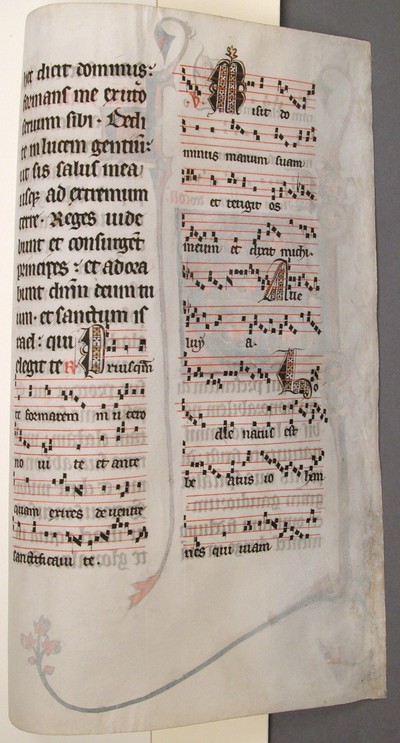 hec dicit dominus:
formans me ex utero
seruum sibi. Dedi
te in lucem gentium:
ut sis salus mea
usq; ad extremum
terre. Reges uide
bunt et consurgent
principes: et adora
bunt dnm deum tu
um. et sanctum is
rael: qui
elegit te R Priusqm
te formarem in u tero
no ui te et ante
quam exires de uentre
sanctificaui te.
V. Misit do
minus manum suam
et tetigit os
meum et dixit michi.
Alle
luy a.
Ho
die natus est
be atus io han
nes qui uiam